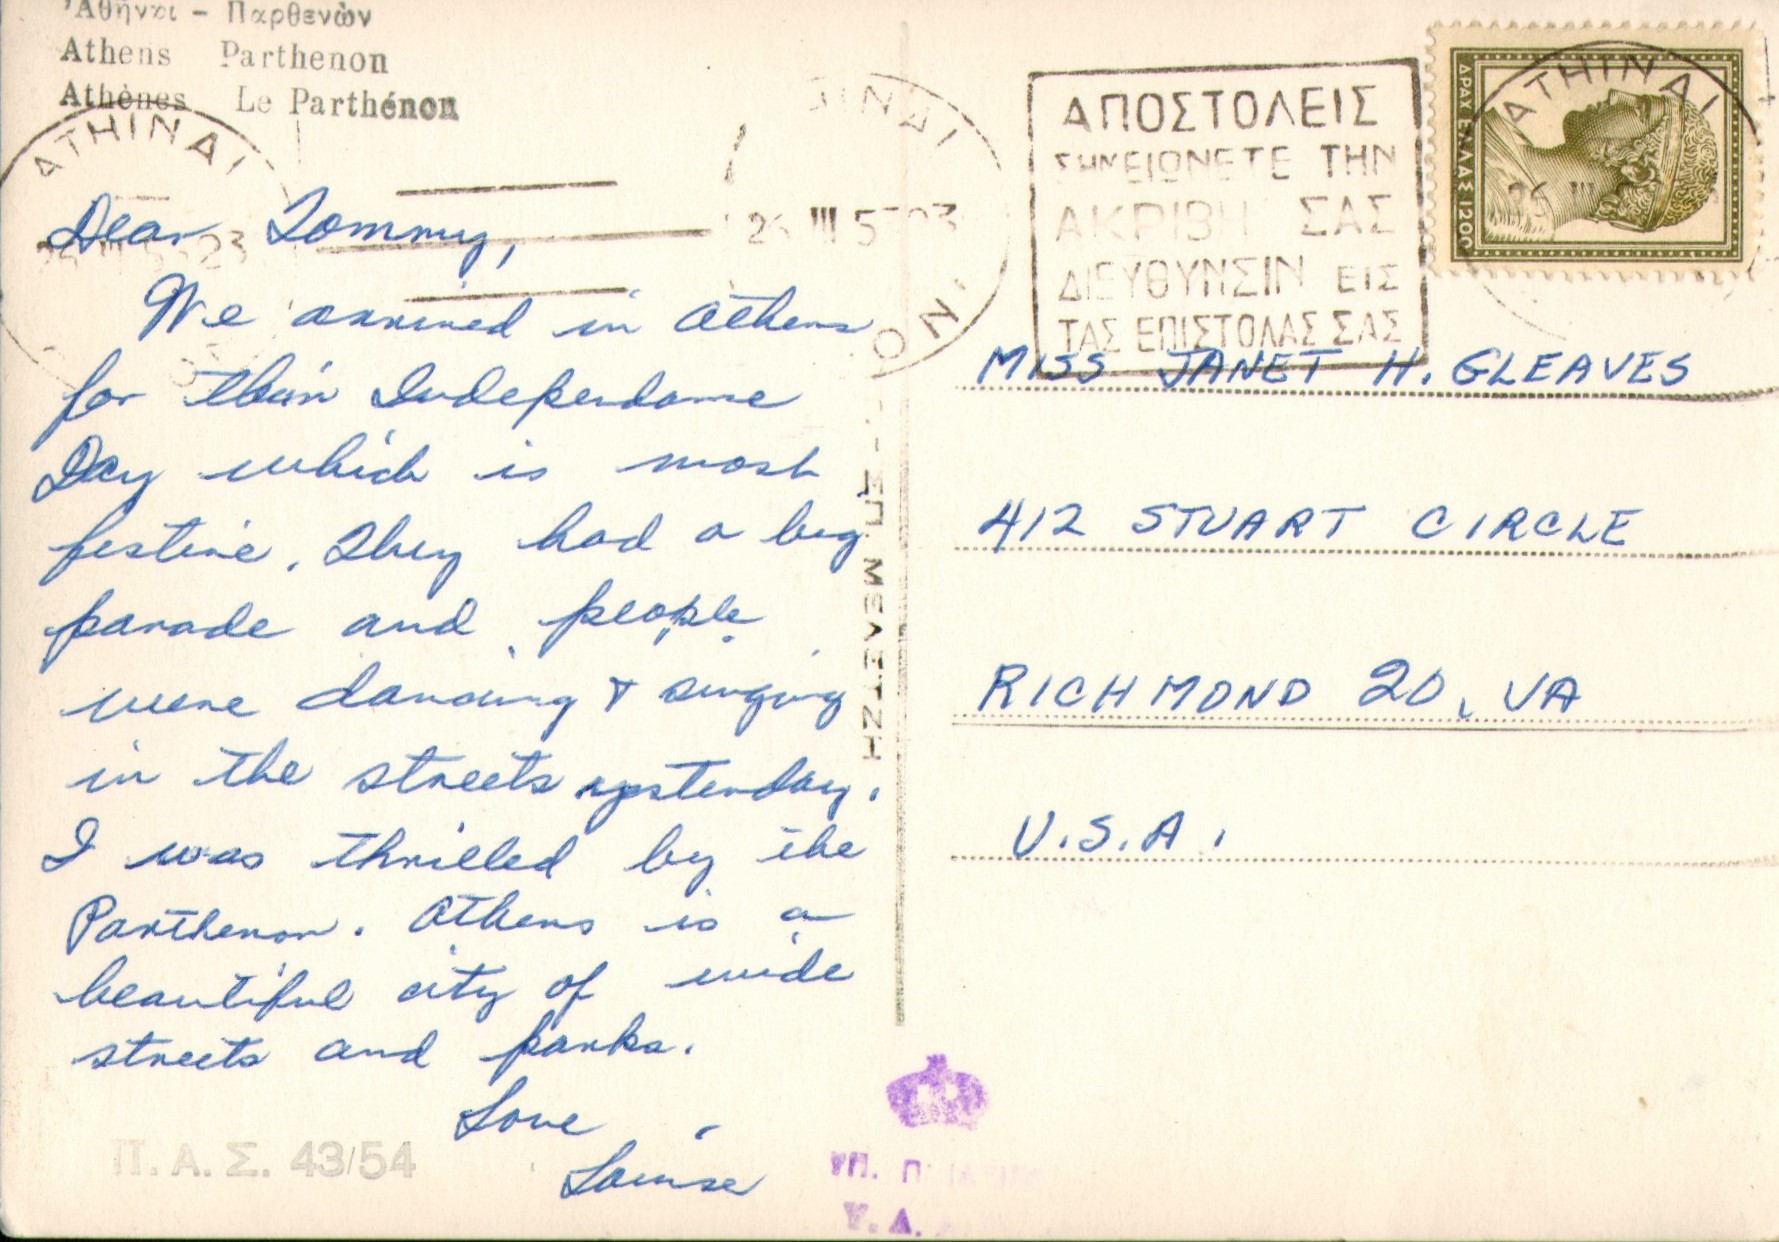 Ἀθῆναι - Παρθενὼν
Athens Parthenon
Athènes Le Parthénon
ATHINAI
ATHINAI
26 III 5
ΑΠΟΣΤΟΛΕΙΣ
ΣΗΜΕΙΩΝΕΤΕ ΤΗΝ
ΑΚΡΙΒΗ ΣΑΣ
ΔΙΕΥΘΥΝΣΙΝ ΕΙΣ
ΤΑΣ ΕΠΙΣΤΟΛΑΣ ΣΑΣ
ΔΡΑΧ ΕΛΛΑΣ 1200
Dear Tommy,
We arrived in Athens
for their Independance
Day which is most
festive. They had a big
parade and people
were dancing + singing
in the streets yesterday.
I was thrilled by the
Parthenon. Athens is a
beautiful city of wide
streets and parks.
Love
Louise
ΜΕΛΕΤΖΗ
MISS JANET H. GLEAVES
412 STUART CIRCLE
RICHMOND 20, VA
U.S.A.
Π.Α.Σ. 43/54
ΥΠ.
Υ.Δ.